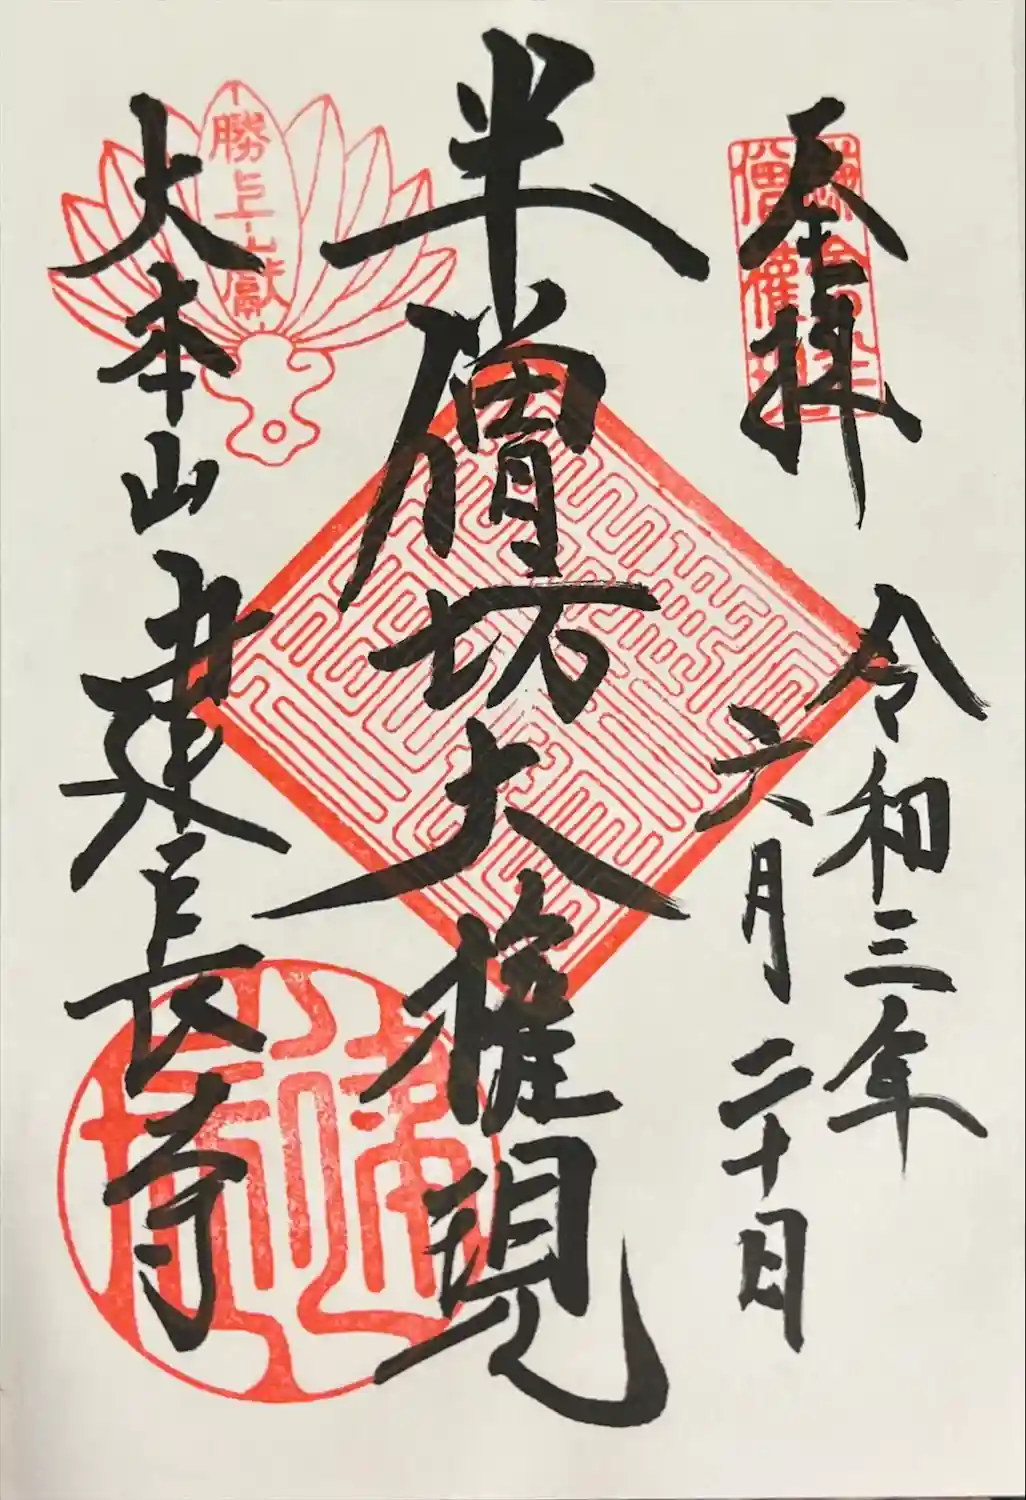 奉拝
令和三年
六月二十日
半僧坊大権現
勝上嶽
大本山建長寺